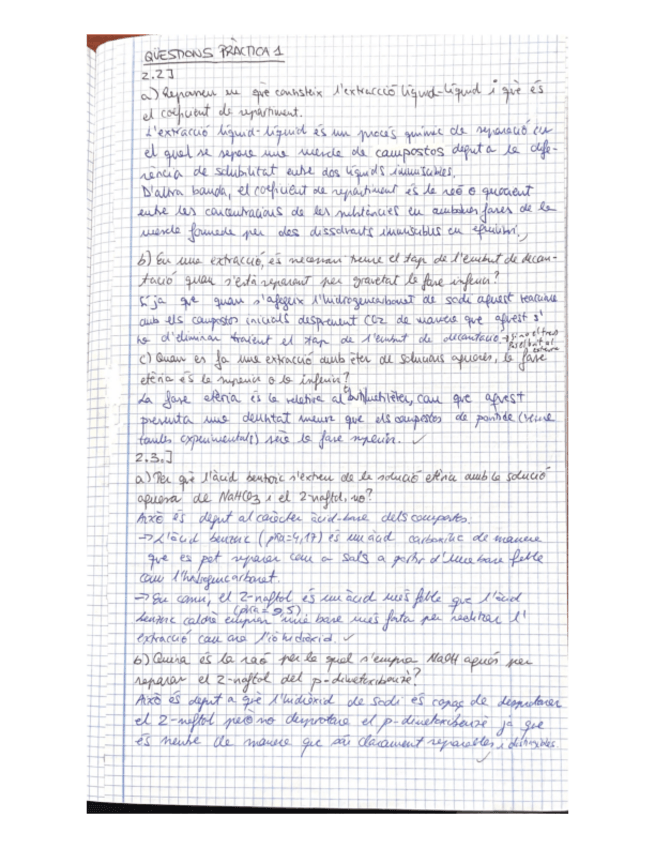 QÜESTIONS PRÀCTICA 1
2.2]
a) Repasseu en què consisteix l'extracció líquid-líquid i què és
el coeficient de repartiment.
L'extracció líquid-líquid és un procés químic de separació en
el qual se separa una mescla de compostos degut a la dife-
rència de solubilitat entre dos líquids immiscibles.
D'altra banda, el coeficient de repartiment és la raó o quocient
entre les concentracions de les substàncies en ambdues fases de la
mescla formada per dos dissolvents immiscibles en equilibri.
b) En una extracció, és necessari treure el tap de l'embut de decan-
tació quan s'està separant per gravetat la fase inferior?
Sí ja que quan s'afegeix l'hidrogencarbonat de sodi aquest reacciona
amb els compostos inicials desprenent CO2 de manera que aquest s'
ha d'eliminar traient el tap de l'embut de decantació.
c) Quan es fa una extracció amb èter de solucions aquoses, la fase
etèria és la superior o la inferior?
La fase etèria és la relativa al, com que aquest
presenta una densitat menor que els compostos de partida (veure
taules experimentals) serà la fase superior. ✓
2.3.]
a) Per què l'àcid benzoic s'extreu de la solució etèria amb la solució
aquosa de NaHCO3 i el 2-naftol, no?
Això és degut al caràcter àcid-base dels compostos.
→ L'àcid benzoic (pka=4,17) és un àcid carboxílic de manera
que es pot separar com a sals a partir d'una base feble
com l'hidrogencarbonat.
→ En canvi, el 2-naftol és un àcid més feble que l'àcid
(pka = 9,5)
benzoic caldrà emprar una base més forta per realitzar l'
extracció com ara l'ió hidròxid. ✓
b) Quina és la raó per la qual s'empra NaOH aquós per
separar el 2-naftol del p-dimetoxibenzè?
Això és degut a què l'hidròxid de sodi és capaç de desprotonar
el 2-naftol però no desprotona el p-dimetoxibenzè ja que
és neutre de manera que són clarament separables i